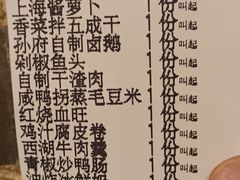 上海酱萝卜 1份 叫起
香菜拌五成干 1份 叫起
孙府自制卤鹅 1份 叫起
剁椒鱼头 1份 叫起
自制干渣肉 1份 叫起
咸鸭拐蒸毛豆米 1份 叫起
红烧血旺 1份 叫起
鸡汁腐皮卷 1份 叫起
西湖牛肉羹 1份 叫起
青椒炒鸭肠 1份 叫起